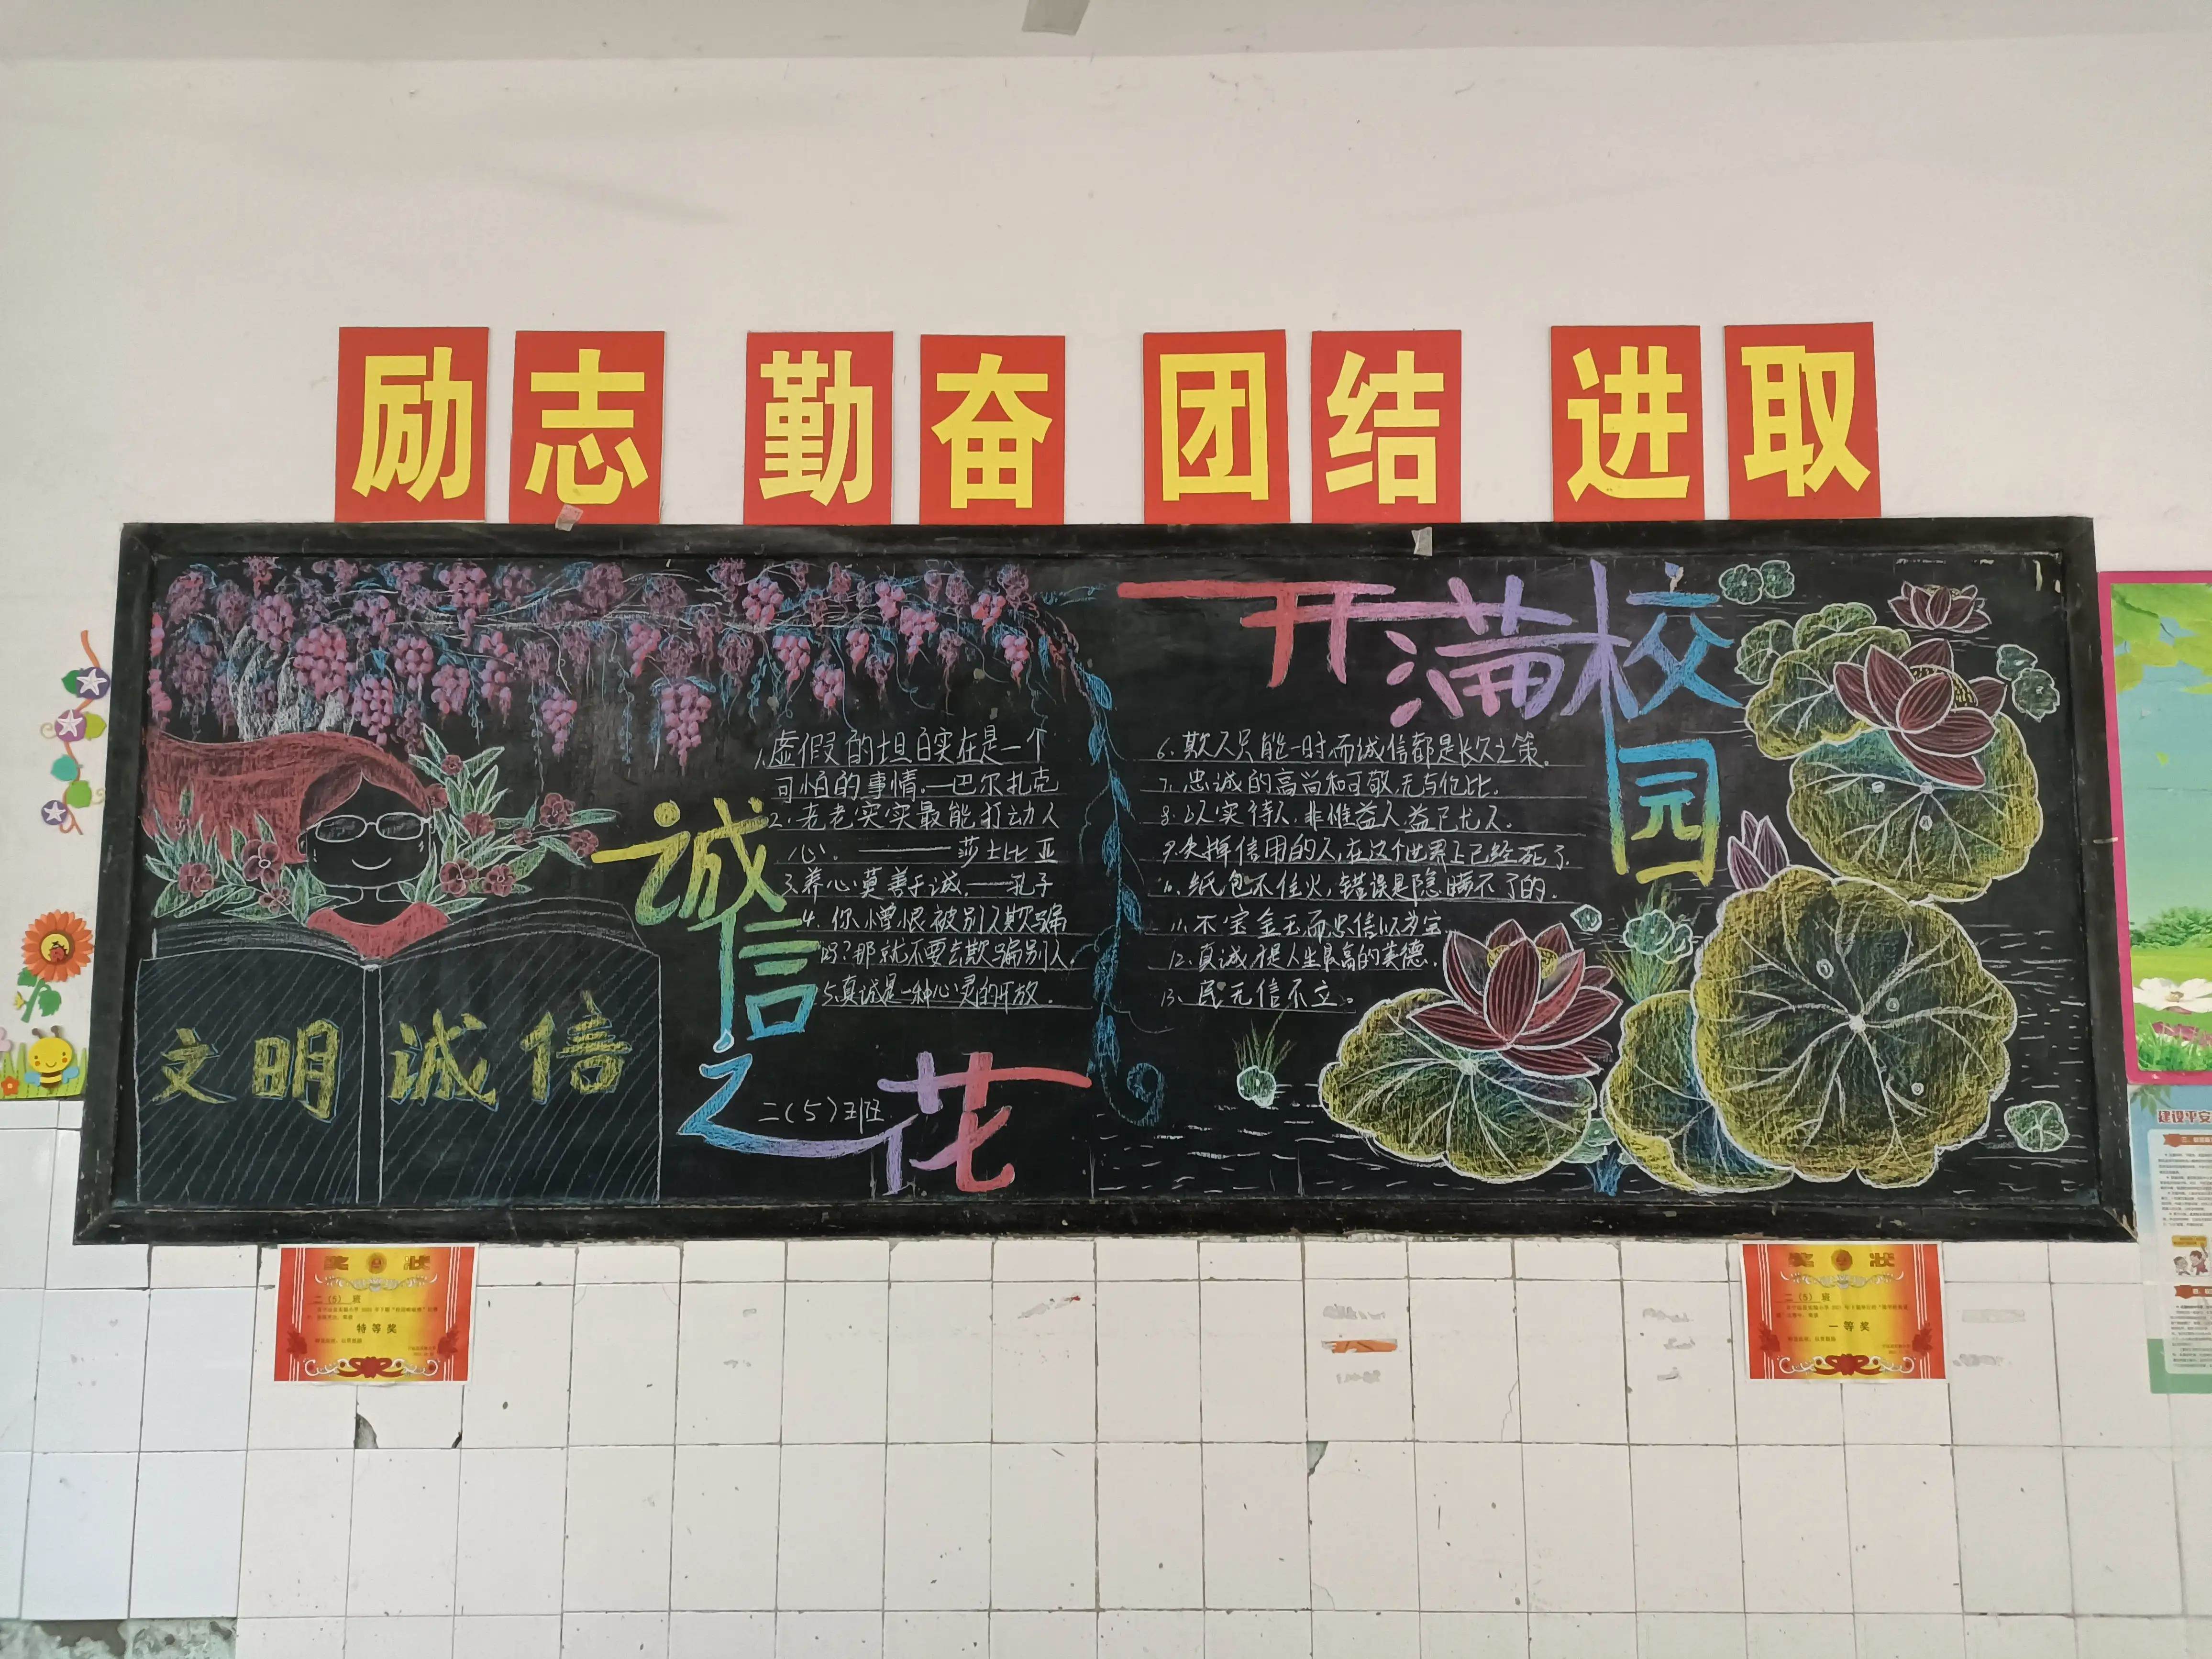 励志 勤奋 团结 进取
诚信之花
开满校园
文明诚信
1.虚假的坦白实在是一个
可怕的事情.—巴尔扎克
2.老老实实最能打动人
心。———莎士比亚
3.养心莫善于诚——孔子
4.你憎恨被别人欺骗
吗?那就不要去欺骗别人.
5.真诚是一种心灵的开放.
二(5)班
6.欺人只能一时,而诚信都是长久之策。
7.忠诚的高尚和可敬,无与伦比.
8.以实待人,非惟益人,益己尤大.
9.失掉信用的人,在这个世界上已经死了.
10.纸包不住火,错误是隐瞒不了的.
11.不宝金玉而忠信以为宝.
12.真诚才是人生最高的美德.
13、民无信不立。
奖状
二(5)班
特等奖
奖状
二(5)班
一等奖
建设平安